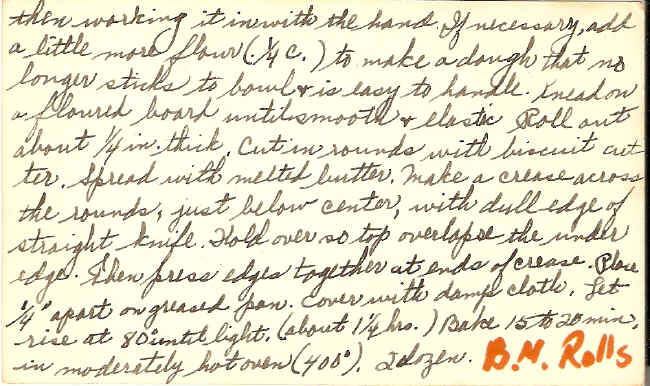 then working it in with the hand. If necessary, add
a little more flour (1/4 c.) to make a dough that no
longer sticks to bowl & is easy to handle. Knead on
a floured board until smooth & elastic Roll out
about 1/4 in. thick. Cut in rounds with biscuit cut
ter. Spread with melted butter. Make a crease across
the rounds, just below center, with dull edge of
straight knife. Fold over so top overlaps the under
edge. Then press edges together at ends of crease. Place
1/4" apart on greased pan. Cover with damp cloth. Let
rise at 80° until light. (about 1 1/4 hrs.) Bake 15 to 20 min.
in moderately hot oven (400°). 2 dozen. B.M. Rolls